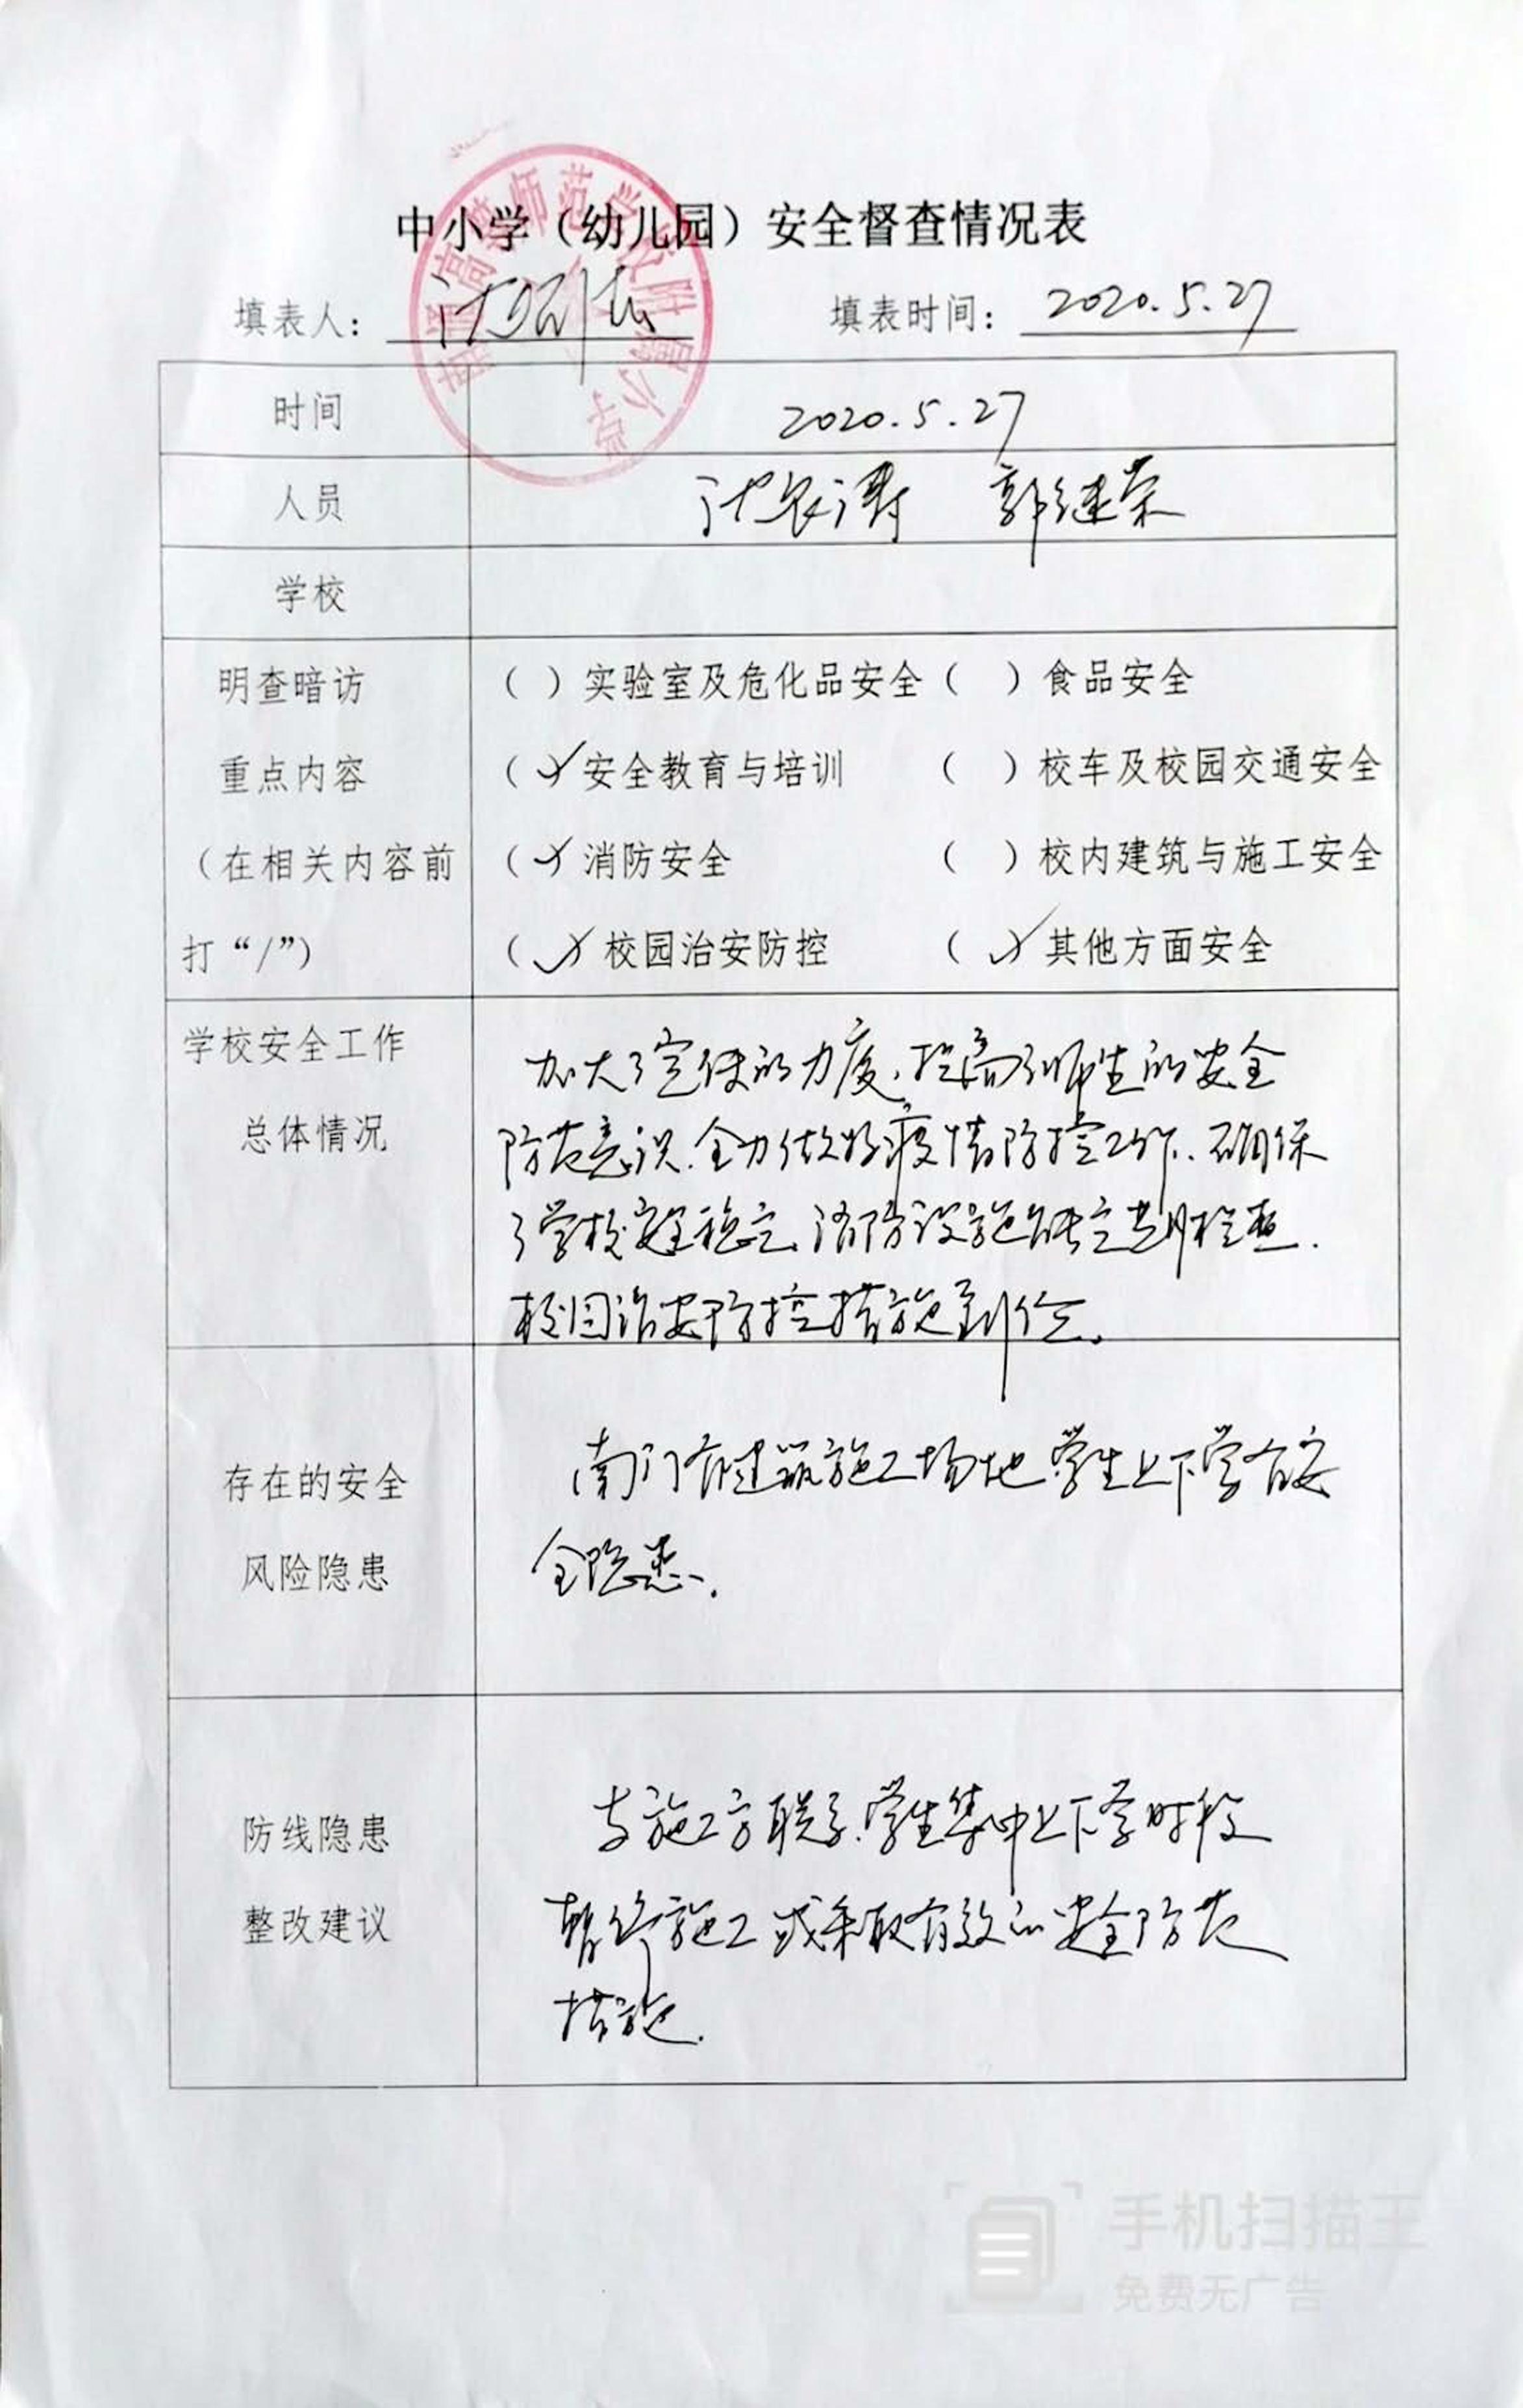 中小学（幼儿园）安全督查情况表
填表人： 填表时间： 2020.5.27
时间 2020.5.27
人员 郭继荣
学校
明查暗访 （ ）实验室及危化品安全（ ）食品安全
重点内容 （✓）安全教育与培训 （ ）校车及校园交通安全
（在相关内容前 （✓）消防安全 （ ）校内建筑与施工安全
打“/”） （✓）校园治安防控 （✓）其他方面安全
学校安全工作
总体情况
加大了宣传的力度，提高了师生的安全
防范意识，全力做好疫情防控工作，确保
了学校安全稳定，消防设施能定期检查，
校园治安防控措施到位。
存在的安全
风险隐患
南门有建筑施工场地，学生上下学有安
全隐患。
防线隐患
整改建议
与施工方联系，学生集中上下学时段
暂停施工或采取有效的安全防范
措施.
师范学校附属小学
手机扫描王
免费无广告